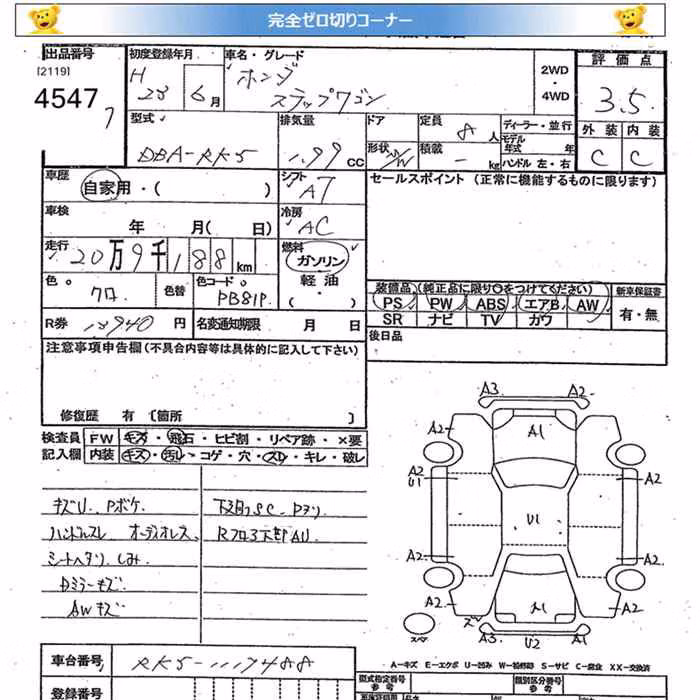 完全ゼロ切りコーナー
出品番号
[2119]
4547
7
初度登録年月
H 23 6月
車名・グレード
ホンダ
ステップワゴン
2WD
・
4WD
評価点
3.5
外装 内装
C C
型式
DBA-RK5
排気量
1.99 CC
ドア
形状 S/W
定員 8人
積載 - kg
ディーラー・並行
モデル
年式 年
ハンドル 左・右
車歴
自家用・( )
シフト
A7
セールスポイント (正常に機能するものに限ります)
車検
年 月( 日)
冷房
AC
走行
20万9千188km
燃料
ガソリン
軽油
( )
色
クロ
色替
色コード
PB81P
装備品 (純正品に限り○をつけてください)
新車保証書
PS PW ABS エアB AW
有・無
SR ナビ TV カワ
R券 12940円
名変通知期限 月 日
後日品
注意事項申告欄 (不具合内容等は具体的に記入して下さい)
修復歴 有 [箇所 ]
検査員 FW キズ・飛石・ヒビ割・リペア跡・×要
記入欄 内装 キズ・汚レ・コゲ・穴・スレ・キレ・破レ
キズU、Pボケ
下廻りSC、
ハンドルスレ オーディオレス
シートヘタリ、しみ
Dミラーキズ
AWキズ
A3 A2
A2 A1 A2
A2
U1 A2
U1
A2 A2
A2 A1 A2
A3 U2 A1
A-キズ E-エクボ U-凹み W-補修跡 S-サビ C-腐食 XX-交換済
車台番号
RK5-1117488
登録番号
型式指定番号
参考
類別区分番号
参考